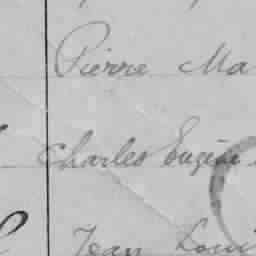 Pierre Ma
Charles Eugène
Jean Loui